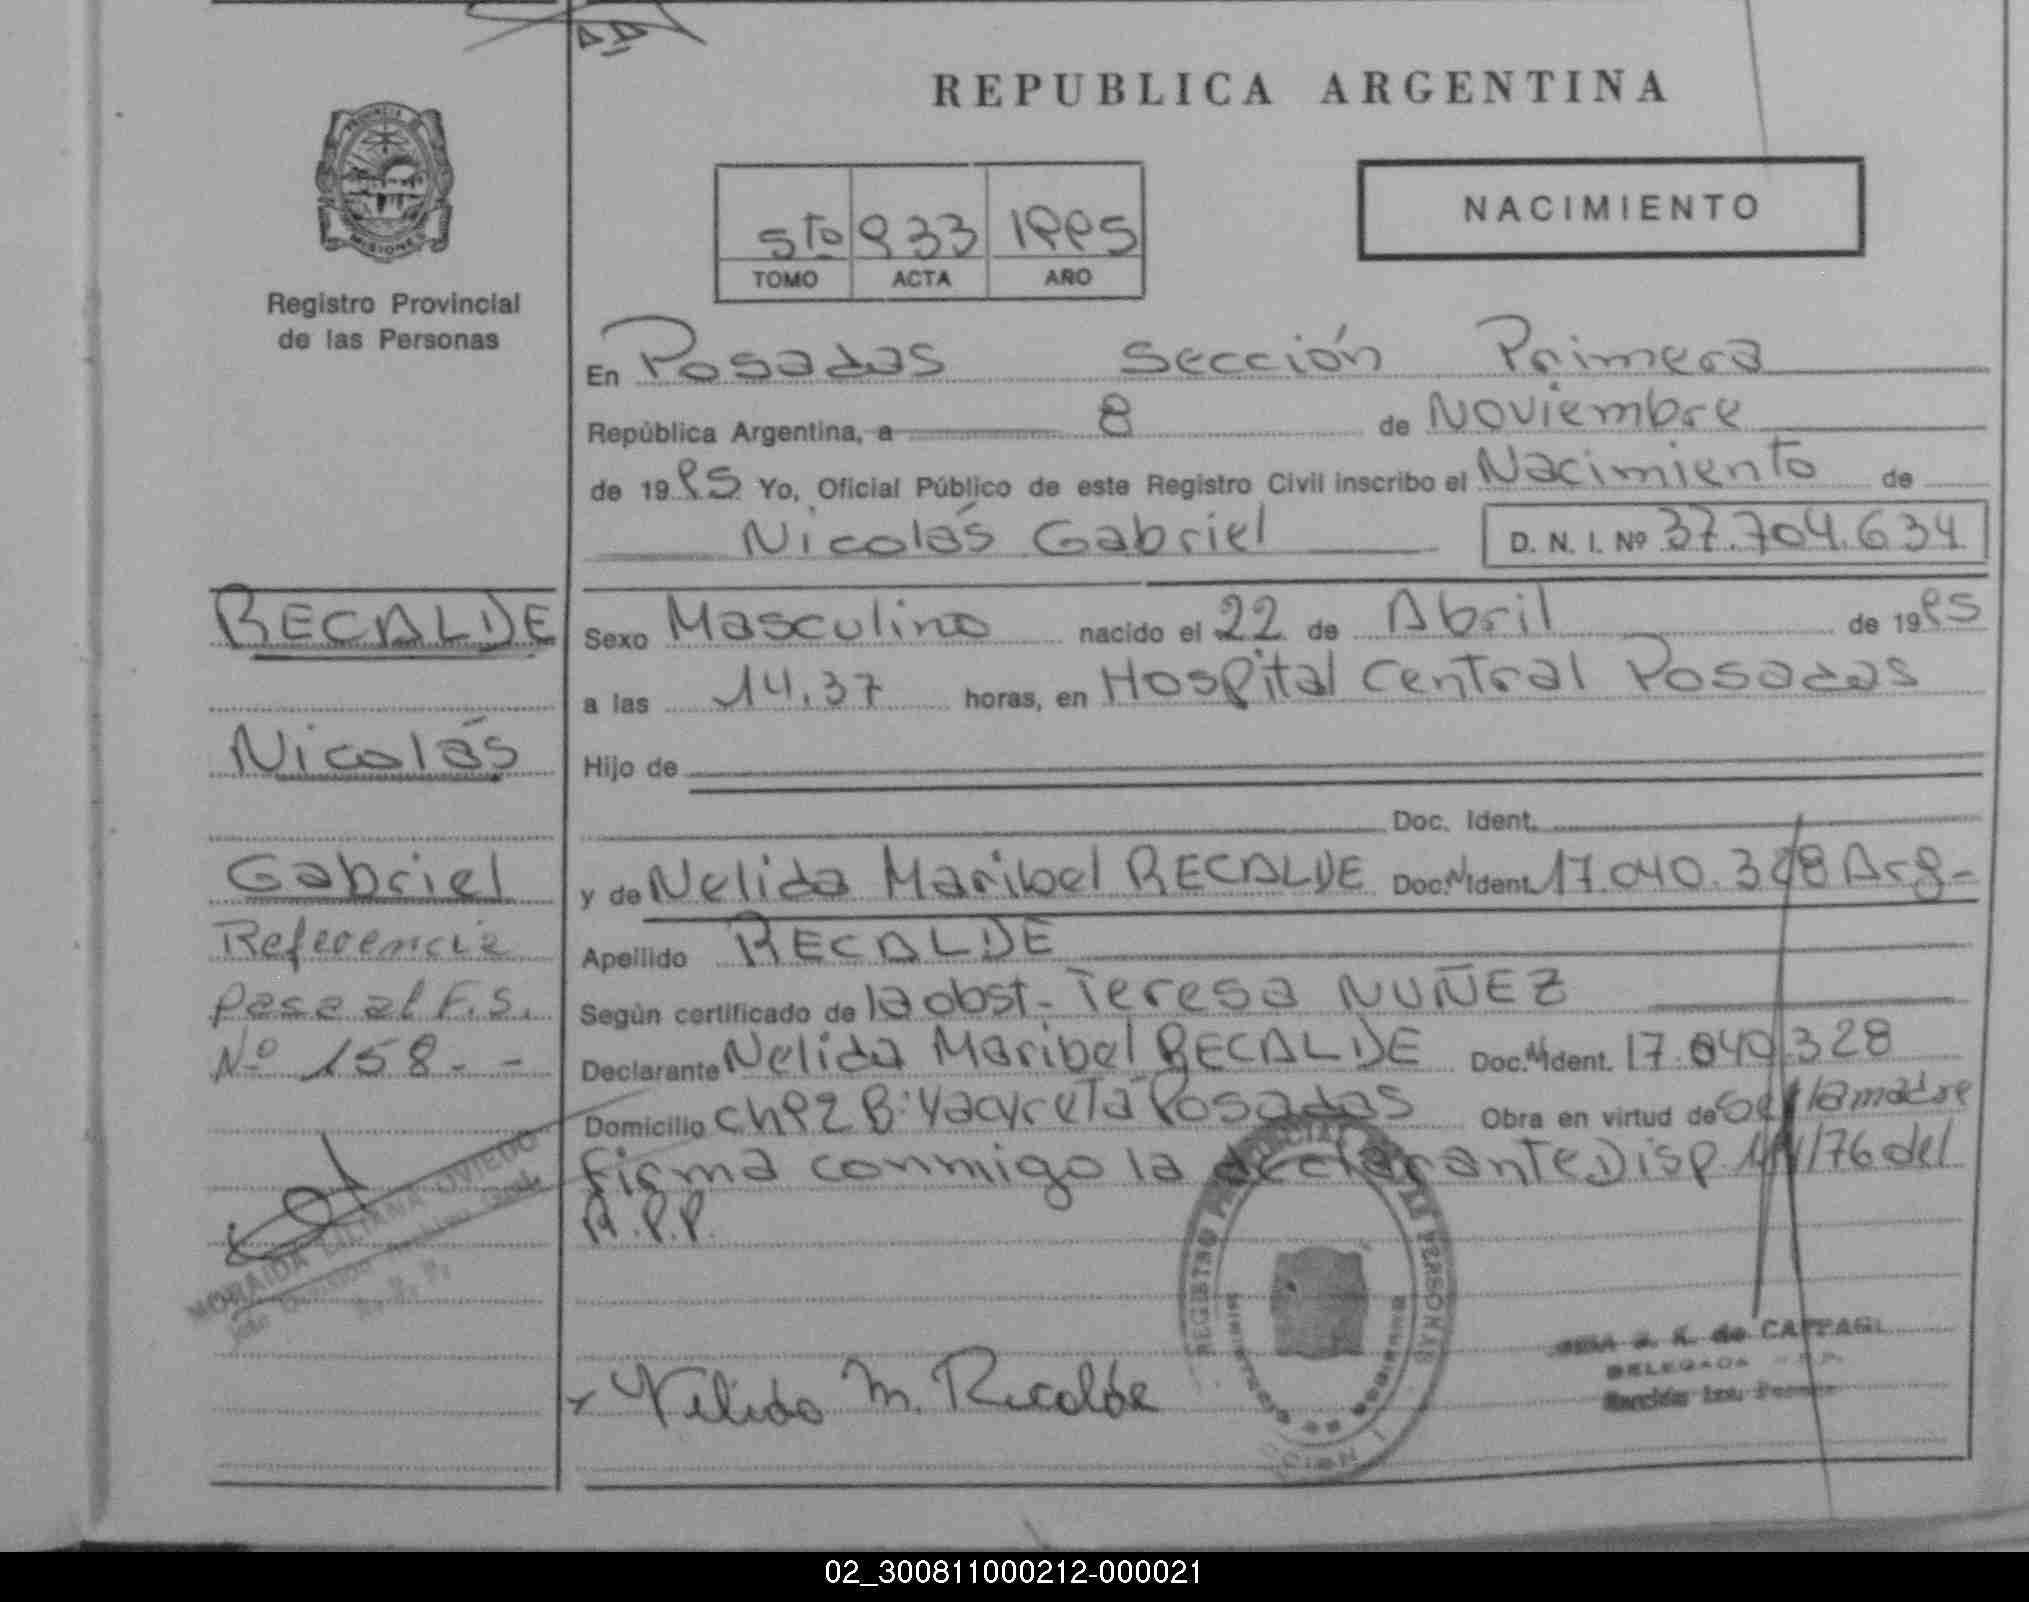 REPUBLICA ARGENTINA
PROVINCIA DE
MISIONES
Registro Provincial
de las Personas
NACIMIENTO
5to 933 1995
TOMO ACTA AÑO
En Posadas Sección Primera
República Argentina, a 8 de Noviembre
de 1995 Yo, Oficial Público de este Registro Civil inscribo el Nacimiento de
Nicolás Gabriel D. N. I. Nº 37.704.634
RECALDE
Nicolás
Gabriel
Referencia
pase al F.S.
Nº 158.- -
Sexo Masculino nacido el 22 de Abril de 1995
a las 14.37 horas, en Hospital Central Posadas
Hijo de
Doc. Ident.
y de Nelida Maribel RECALDE Doc.N Ident. 17.040.328 Arg-
Apellido RECALDE
Según certificado de la obst- Teresa NUÑEZ
Declarante Nelida Maribel RECALDE Doc.N Ident. 17.040.328
Domicilio ch92 B: Yacyreta Posadas Obra en virtud de la madre
firma conmigo la declarante Disp /76 del
R.P.P.
LILIANA OVIEDO
REGISTRO DE LAS PERSONAS
de
DELEGADA
Nelida M. Recalde
02_300811000212-000021